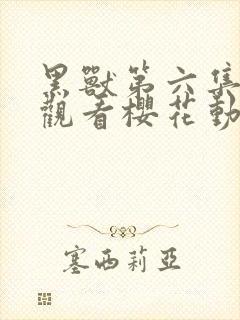 黑獸第六集
觀看櫻花動
塞西莉亞